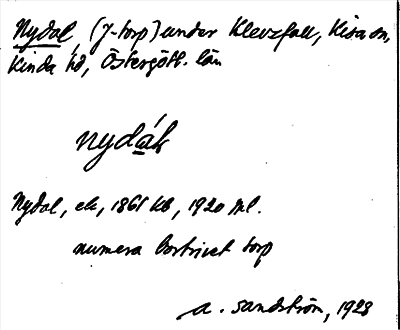 Nydal, (J-torp) under Klevsfall, Kisa sn,
Kinda hd, Östergötl. län
nydák
Nydal, ek, 1861 kb, 1920 ml.
numera bortrivet torp
A. Sandström, 1928